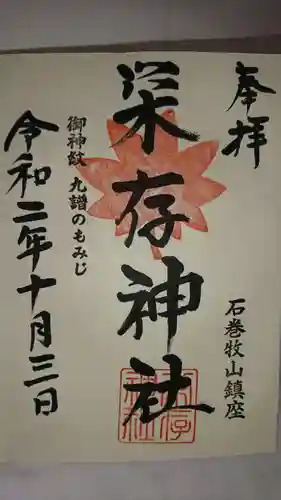 奉拝
石巻牧山鎮座
栄存神社
御神紋 九譜のもみじ
令和二年十月三日
栄存神社